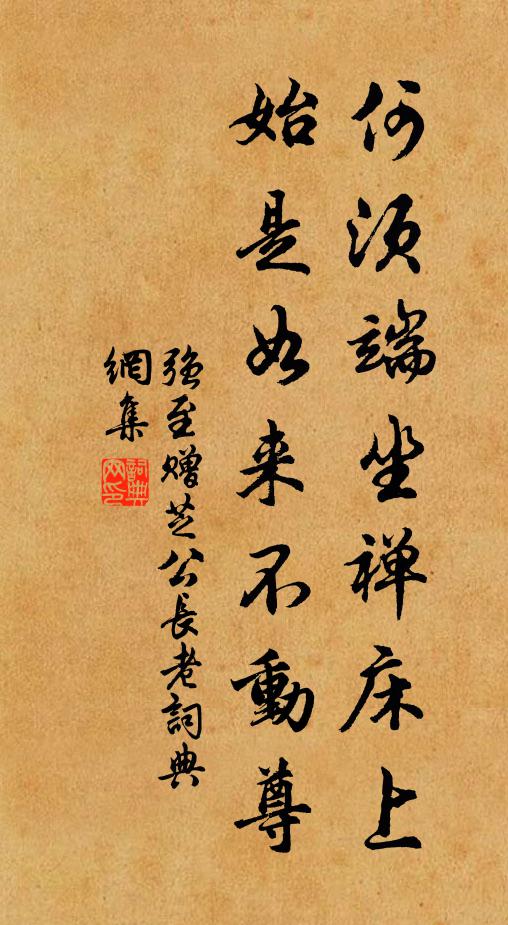 何须端坐禅床上
始是如来不動尊
强至赠芝公長老詞典
網集
詞典
网印